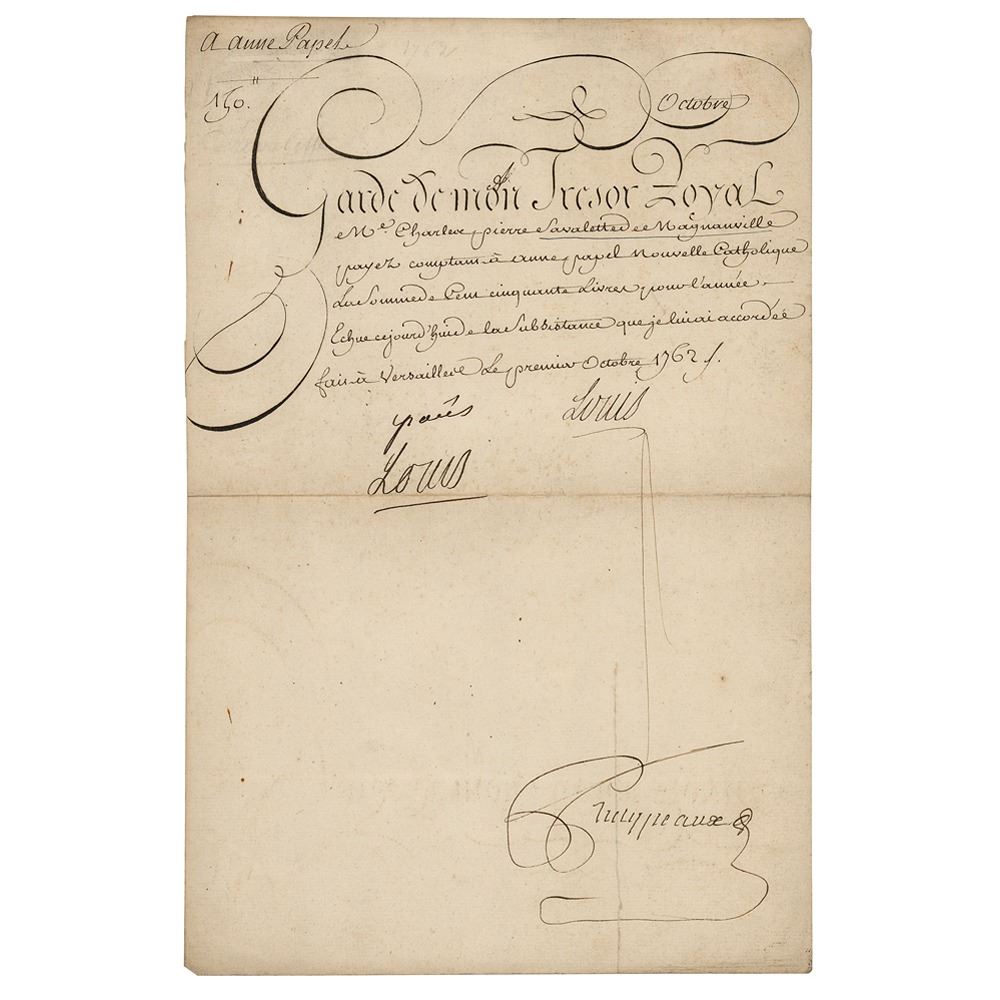 a anne Papel
150.
Octobre
Garde de mon Tresor Royal
Me. Charles pierre Savalette de Magnanville
payez comptant à anne papel Nouvelle Catholique
La Somme de Cent cinquante Livres pour l'année
Echue cejourd'huy de la Subsistance que je lui ai accordée
fait à Versailles Le premier Octobre 1762 /.
Louis
paiés
Louis
Phelypeaux